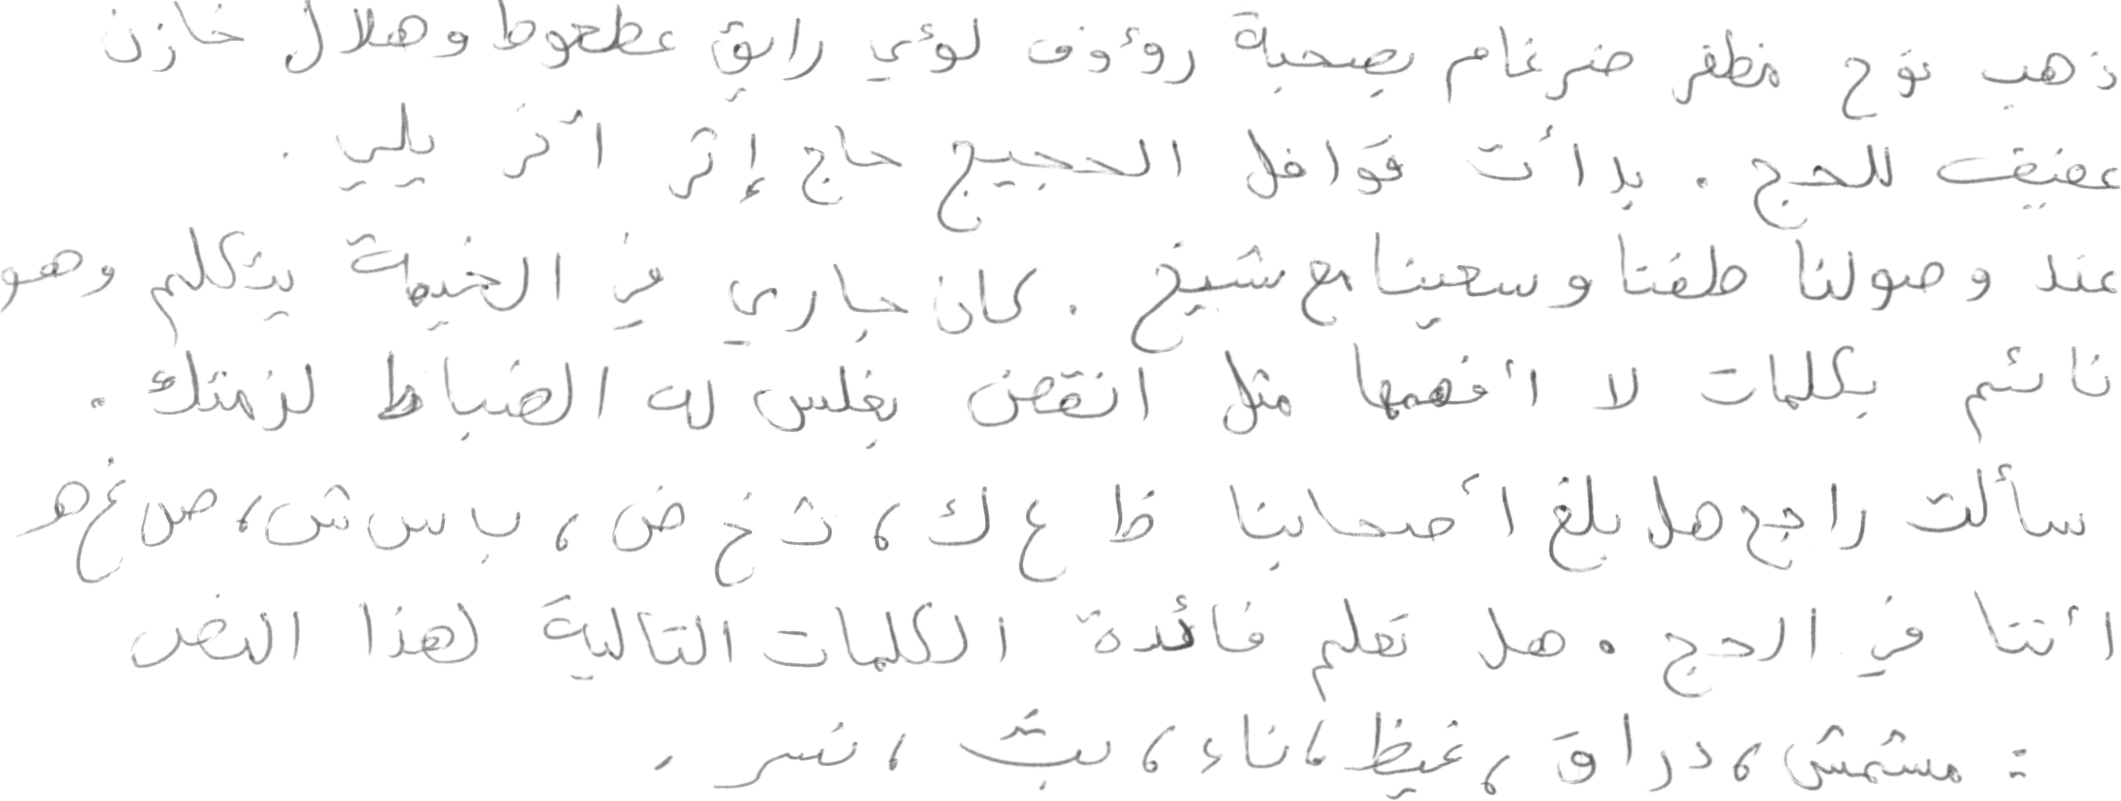 ذهب نوح مظفر ضرغام بصحبة رؤوف لؤي رايق عطعوط وهلال خازن
عفيف للحج . بدأت قوافل الحجيج حاج إثر آخر يلي .
عند وصولنا طفنا وسعينا مع شيخ . كان جاري في الخيمة يتكلم وهو
نائم بكلمات لا أفهمها مثل انقض بغلس له الضباط لزمتك .
سألت راجح هل بلغ أصحابنا ظ ع ك ، ث خ ض ، ب س ش ، ص غ ه
أننا في الحج . هل تعلم فائدة الكلمات التالية لهذا النص
: مشمش ، دراق ، غيظ ، ناء ، بث ، نسر .